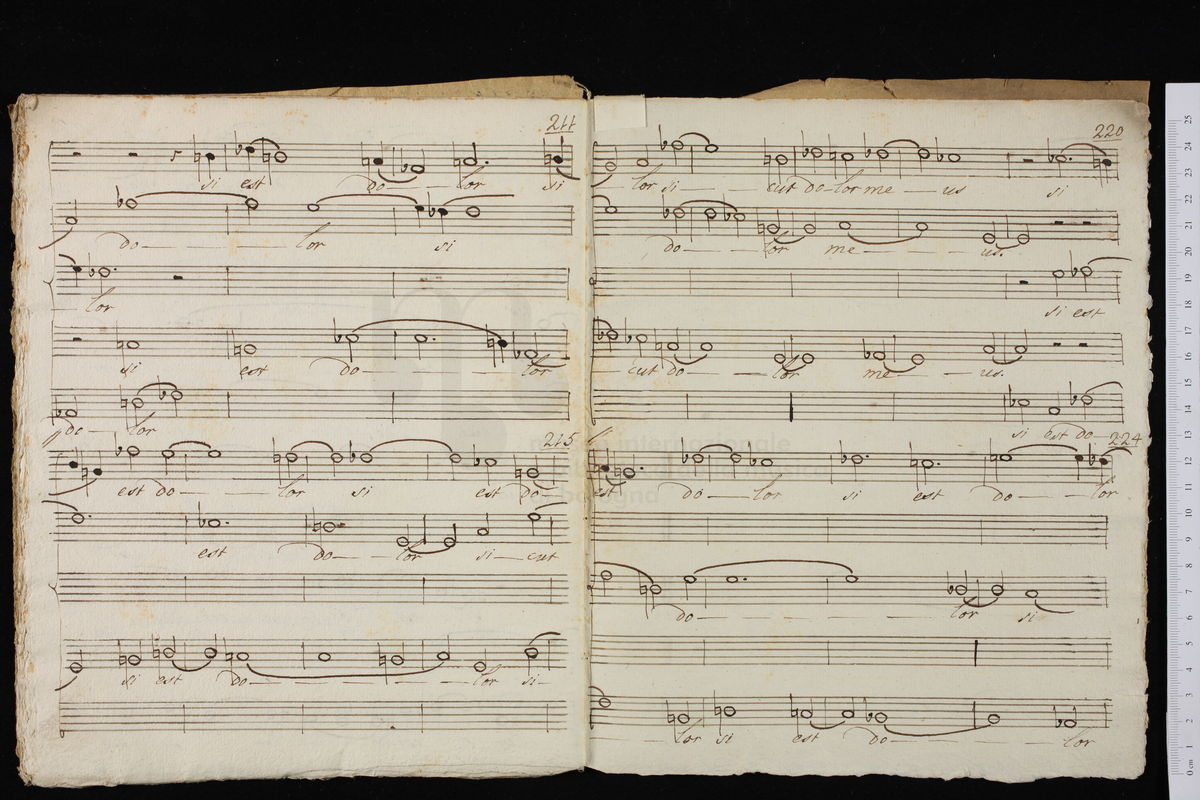 211
si est do- - lor si
do- - - - lor si
lor
si est do- - - lor
do- - lor
215
est do- - - lor si est do-
est do- - lor si- cut
si est do- - - - - - lor si-
220
lor si- cut do-lor me- us si
do- - - lor me- - us.
si est
cut do- - - lor me- - us.
si est do-
224
est do- lor si est do- - lor
do- - - - - - lor si
- - lor si est do- - - - lor
museo internazionale
bologna
25
24
23
22
21
20
19
18
17
16
15
14
13
12
11
10
9
8
7
6
5
4
3
2
1
0 cm